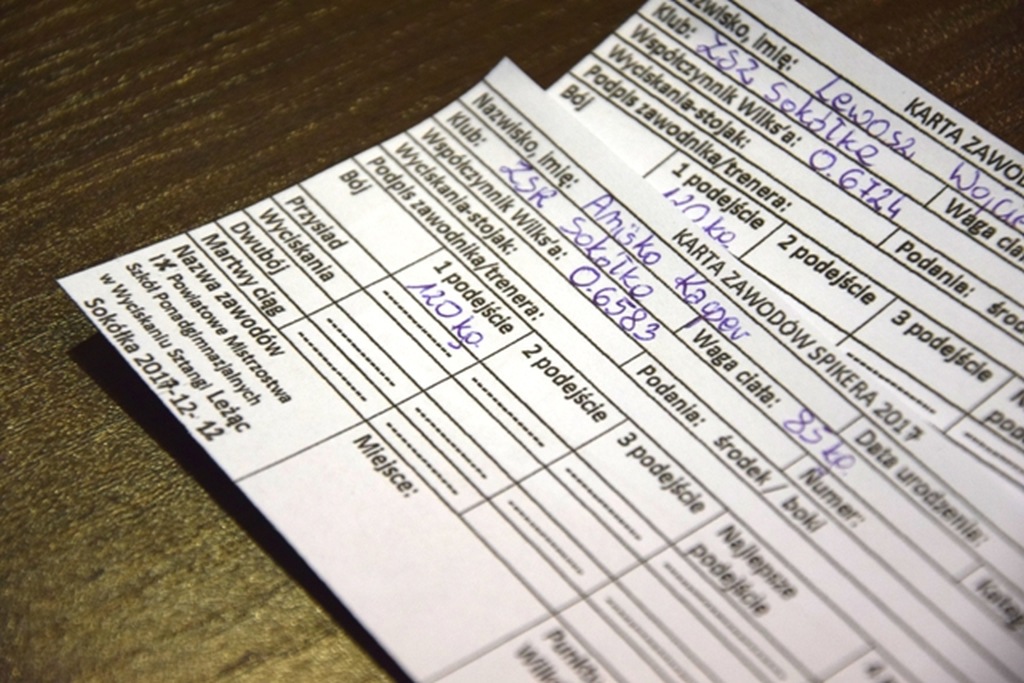 KARTA ZAWODÓW SPIKERA 2017
Nazwisko, imię: Aniśko Kacper
Data urodzenia:
Klub: ZSR Sokółka
Waga ciała: 85 kg
Numer:
Współczynnik Wilks'a: 0.6583
Wyciskania-stojak:
Podania: środek / boki
Podpis zawodnika/trenera:
Bój
1 podejście
2 podejście
3 podejście
Najlepsze podejście
Przysiad
Wyciskania
120 kg
Dwubój
Martwy ciąg
Nazwa zawodów
IX Powiatowe Mistrzostwa
Szkół Ponadgimnazjalnych
w Wyciskaniu Sztangi Leżąc
Sokółka 2017-12-12
Miejsce:
KARTA ZAWOD
azwisko, imię: Lewosz Wojcie
Klub: ZSZ Sokółka
Waga cia
Współczynnik Wilks'a: 0.6724
Wyciskania-stojak:
Podania: środ
Podpis zawodnika/trenera:
Bój
1 podejście
2 podejście
3 podejście